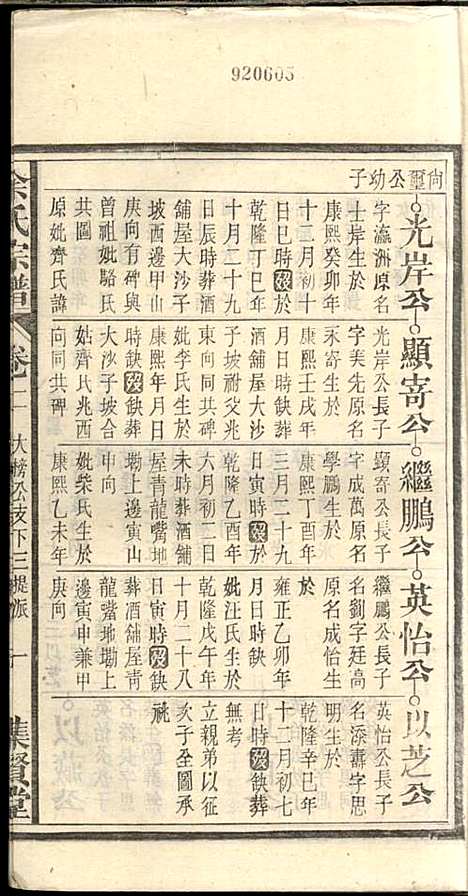 920605
尙璽公幼子
光岸公
字瀛洲原名
士岸生於
康熙癸卯年
十二月初十
日巳時歿於
乾隆丁巳年
十月二十九
日辰時葬酒
舖屋大沙子
坡西邊甲山
庚向有碑與
曾祖妣駱氏
共圖
原妣齊氏諱
顯寄公
光岸公長子
字美先原名
禾寄生於
康熙壬戌年
月日時缺葬
酒舖屋大沙
子坡祔父兆
東向同共碑
妣李氏生於
康熙年月日
時缺歿缺葬
大沙子坡合
姑齊氏兆西
向同共碑
繼鵬公
顯寄公長子
字成萬原名
學鵬生於
康熙丁酉年
三月二十九
日寅時歿於
乾隆乙酉年
六月初二日
未時葬酒舖
屋青龍嘴地
塝上邊寅山
申向
妣柴氏生於
康熙乙未年
英怡公
繼鵬公長子
名劉字廷高
原名成怡生
於
雍正乙卯年
月日時缺
妣汪氏生於
乾隆戊午年
十月二十八
日寅時歿缺
葬酒舖屋青
龍嘴地塝上
邊寅申兼甲
庚向
以芝公
英怡公長子
名添壽字思
明生於
乾隆辛巳年
十二月初七
日時歿缺葬
無考
立親弟以征
次子全圖承
祧
余氏宗譜
卷二
大榜公支下三提派
十
集賢堂